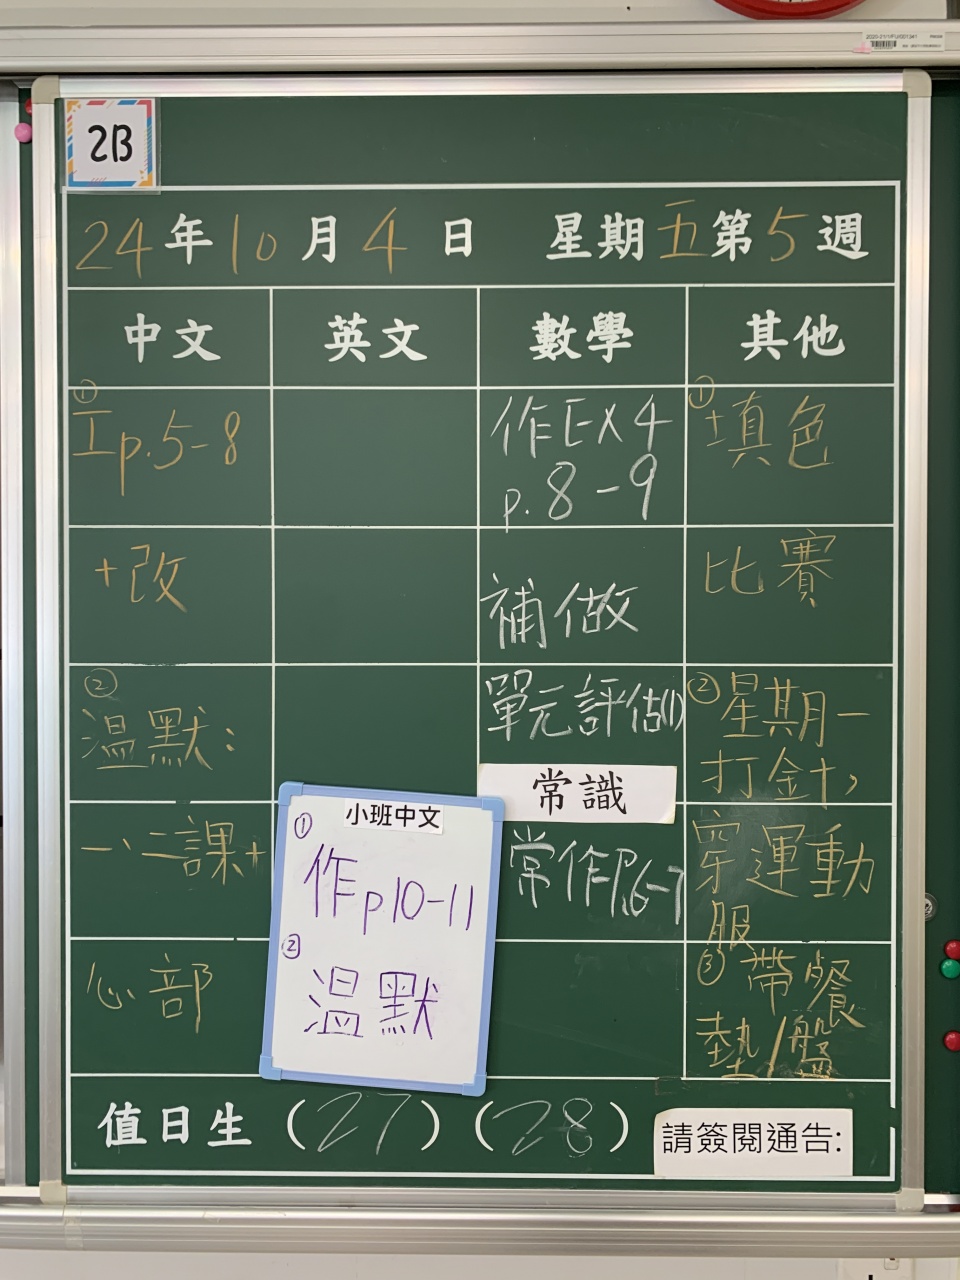 2B
24年10月4日 星期五第5週
中文 英文 數學 其他
①
工p.5-8
+改
②
溫默:
一、二課+
心部
作EX4
p.8-9
補做
單元評估(1)
常識
常作P.6-7
①
填色
比賽
②星期一
打金十,
穿運動
服
③帶餐
墊/盤
小班中文
①
作p10-11
②
溫默
值日生(27)(28)
請簽閱通告: